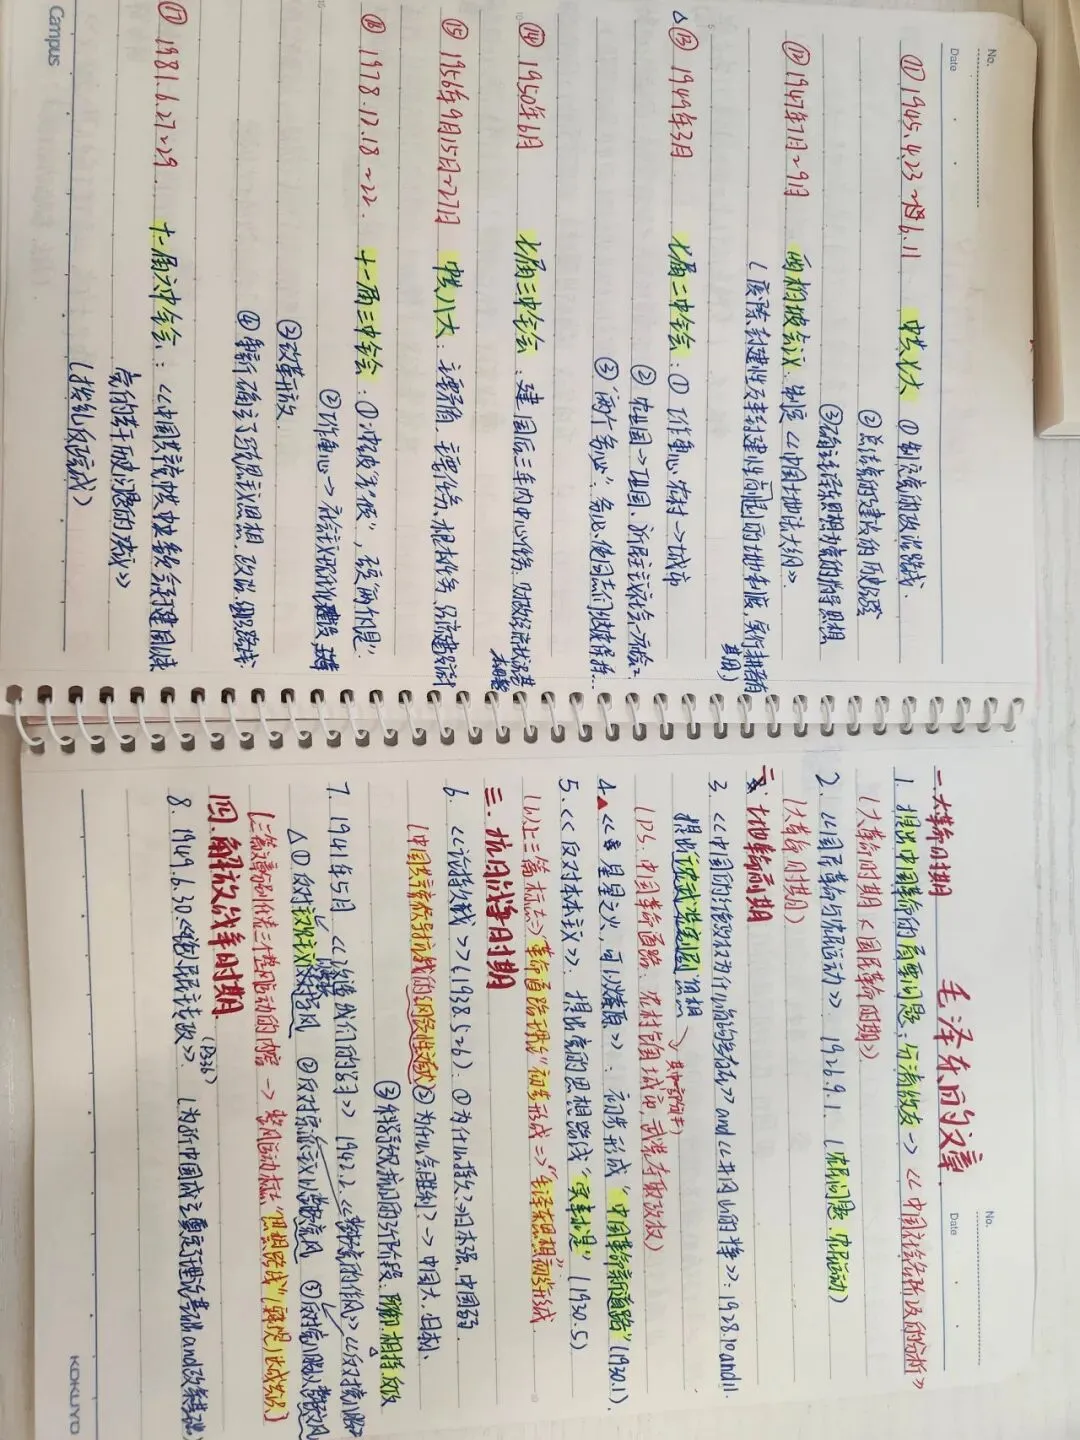 No.
Date
⑪ 1945.4.23~6.11 中共七大 ① 制定党的政治路线.
② 总结党的建设的历史经验
③ 确立毛泽东思想为党的指导思想
⑫ 1947年7月~9月 西柏坡会议. 制定《中国土地法大纲》.
(废除封建性及半封建性剥削的土地制度, 实行耕者有其田)
△⑬ 1949年3月 七届二中全会: ① 工作重心: 农村→城市
② 农业国→工业国、新民主主义社会→
③ "两个务必": 务必使同志们继续保持...
⑭ 1950年6月 七届三中全会: 建国后三年内中心任务: 财政经济状况基本好转
⑮ 1956年9月15日~27日 中共八大: 主要矛盾、主要任务、根本任务、经济建设
⑯ 1978.12.18~22. 十一届三中全会: ① 冲破"左"倾", "两个凡是".
② 工作重心→社会主义现代化建设,
③ 改革开放.
④ 重新确立了马克思主义思想、政治、组织路线
⑰ 1981.6.27~29. 十一届六中全会: 《中国共产党中央委员会关于建国以来
党的若干历史问题的决议》
(拨乱反正完成)
Campus
No.
Date
毛泽东同的文章
一. 大革命时期
1. 提出中国革命的首要问题: 分清敌友→《中国社会各阶级的分析》
(大革命时期<国民革命时期>)
2. 《国民革命与农民运动》 1926.9.1. (农民问题 农民运动)
(大革命时期)
二. 土地革命时期
3. 《中国的红色政权为什么能够存在》and《井冈山的斗争》: 1928.10 and 11.
提出"工农武装割据"思想
(P.S. 中国革命道路: 农村包围城市, 武装夺取政权)
4▲《星星之火, 可以燎原》: 初步形成"中国革命新道路"(1930.1).
5. 《反对本本主义》: 提出党的思想路线"实事求是"(1930.5)
(以上三篇标志⇒"革命道路理论"初步形成⇒"毛泽东思想"初步形成.
三. 抗日战争时期
6. 《论持久战》(1938.5.26). ① 为什么持久⇒日本强, 中国弱.
(中国共产党领导抗战的纲领性文献) ② 为什么会胜利?→中国大、日本小.
③ 科学预见抗战的三个阶段: 防御. 相持. 反攻
7. 1941年5月《改造我们的学习》 1942.2.《整顿党的作风》《反对党八股》
△① 反对主观主义以整顿学风 ② 反对宗派主义以整顿党风 ③ 反对党八股以整顿文风
四. 解放战争时期
(P236)
8. 1949.6.30.《论人民民主专政》. (为新中国成立奠定理论基础and政策基础)
KOKUYO